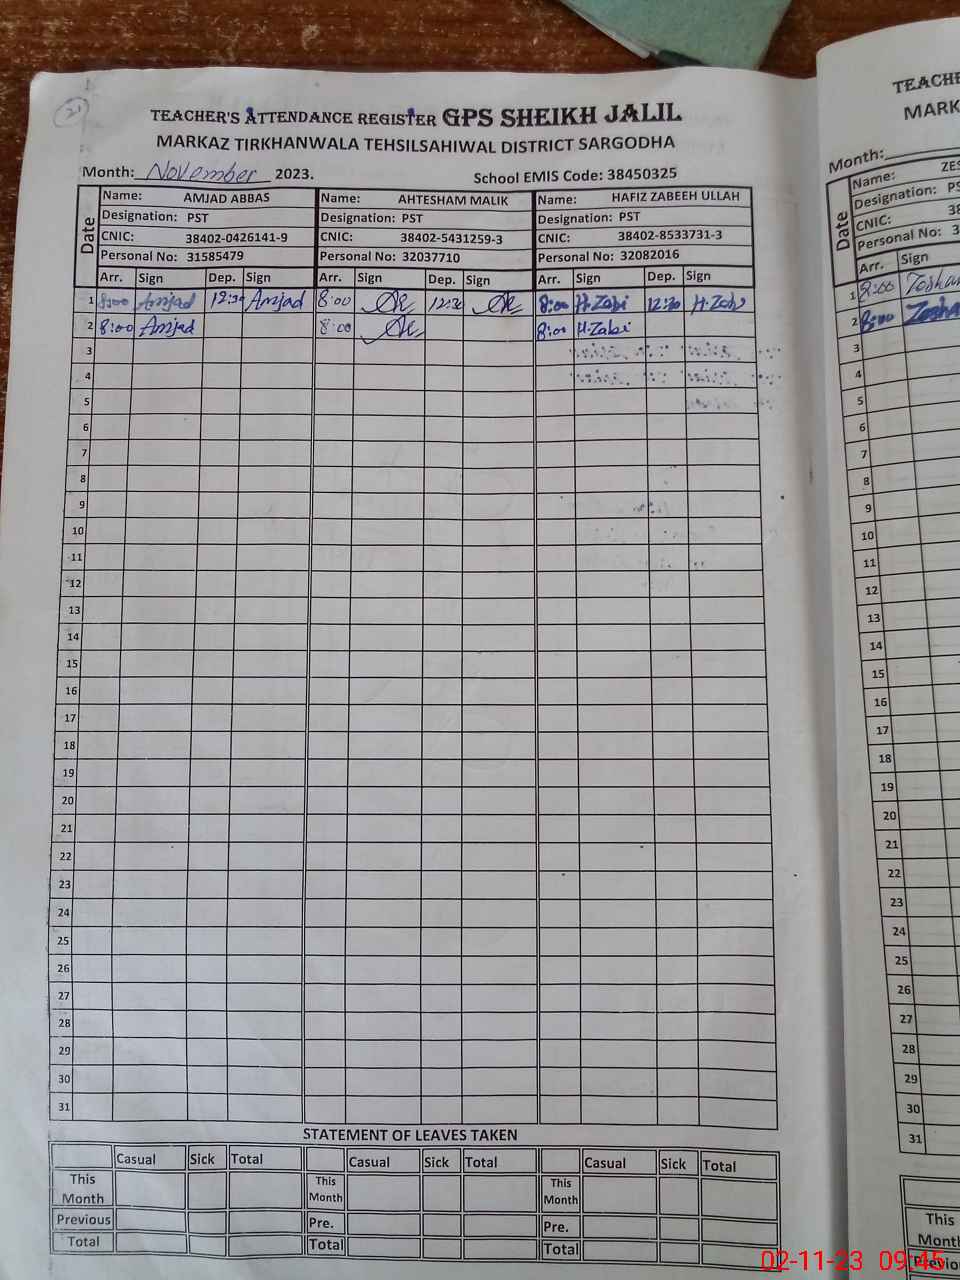 21
TEACHER'S ATTENDANCE REGISTER GPS SHEIKH JALIL
MARKAZ TIRKHANWALA TEHSILSAHIWAL DISTRICT SARGODHA
Month: November 2023. School EMIS Code: 38450325
Date
Name: AMJAD ABBAS Name: AHTESHAM MALIK Name: HAFIZ ZABEEH ULLAH
Designation: PST Designation: PST Designation: PST
CNIC: 38402-0426141-9 CNIC: 38402-5431259-3 CNIC: 38402-8533731-3
Personal No: 31585479 Personal No: 32037710 Personal No: 32082016
Arr. Sign Dep. Sign Arr. Sign Dep. Sign Arr. Sign Dep. Sign
1 8:00 Amjad 12:30 Amjad 8:00 12:30 8:00 H.Zabi 12:30 H.Zabi
2 8:00 Amjad 8:00 8:00 H.Zabi
3
4
5
6
7
8
9
10
11
12
13
14
15
16
17
18
19
20
21
22
23
24
25
26
27
28
29
30
31
STATEMENT OF LEAVES TAKEN
Casual Sick Total Casual Sick Total Casual Sick Total
This Month This Month This Month
Previous Pre. Pre.
Total Total Total
TEACHE
MARK
Month:
Date
Name: ZES
Designation: PS
CNIC: 38
Personal No: 3
Arr. Sign
1 8:00
2 8:00
3
4
5
6
7
8
9
10
11
12
13
14
15
16
17
18
19
20
21
22
23
24
25
26
27
28
29
30
31
This
Month
Previo
02-11-23 09:45